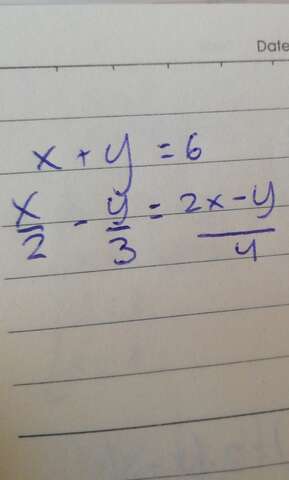 Date
x + y = 6
x/2 - y/3 = 2x-y/4